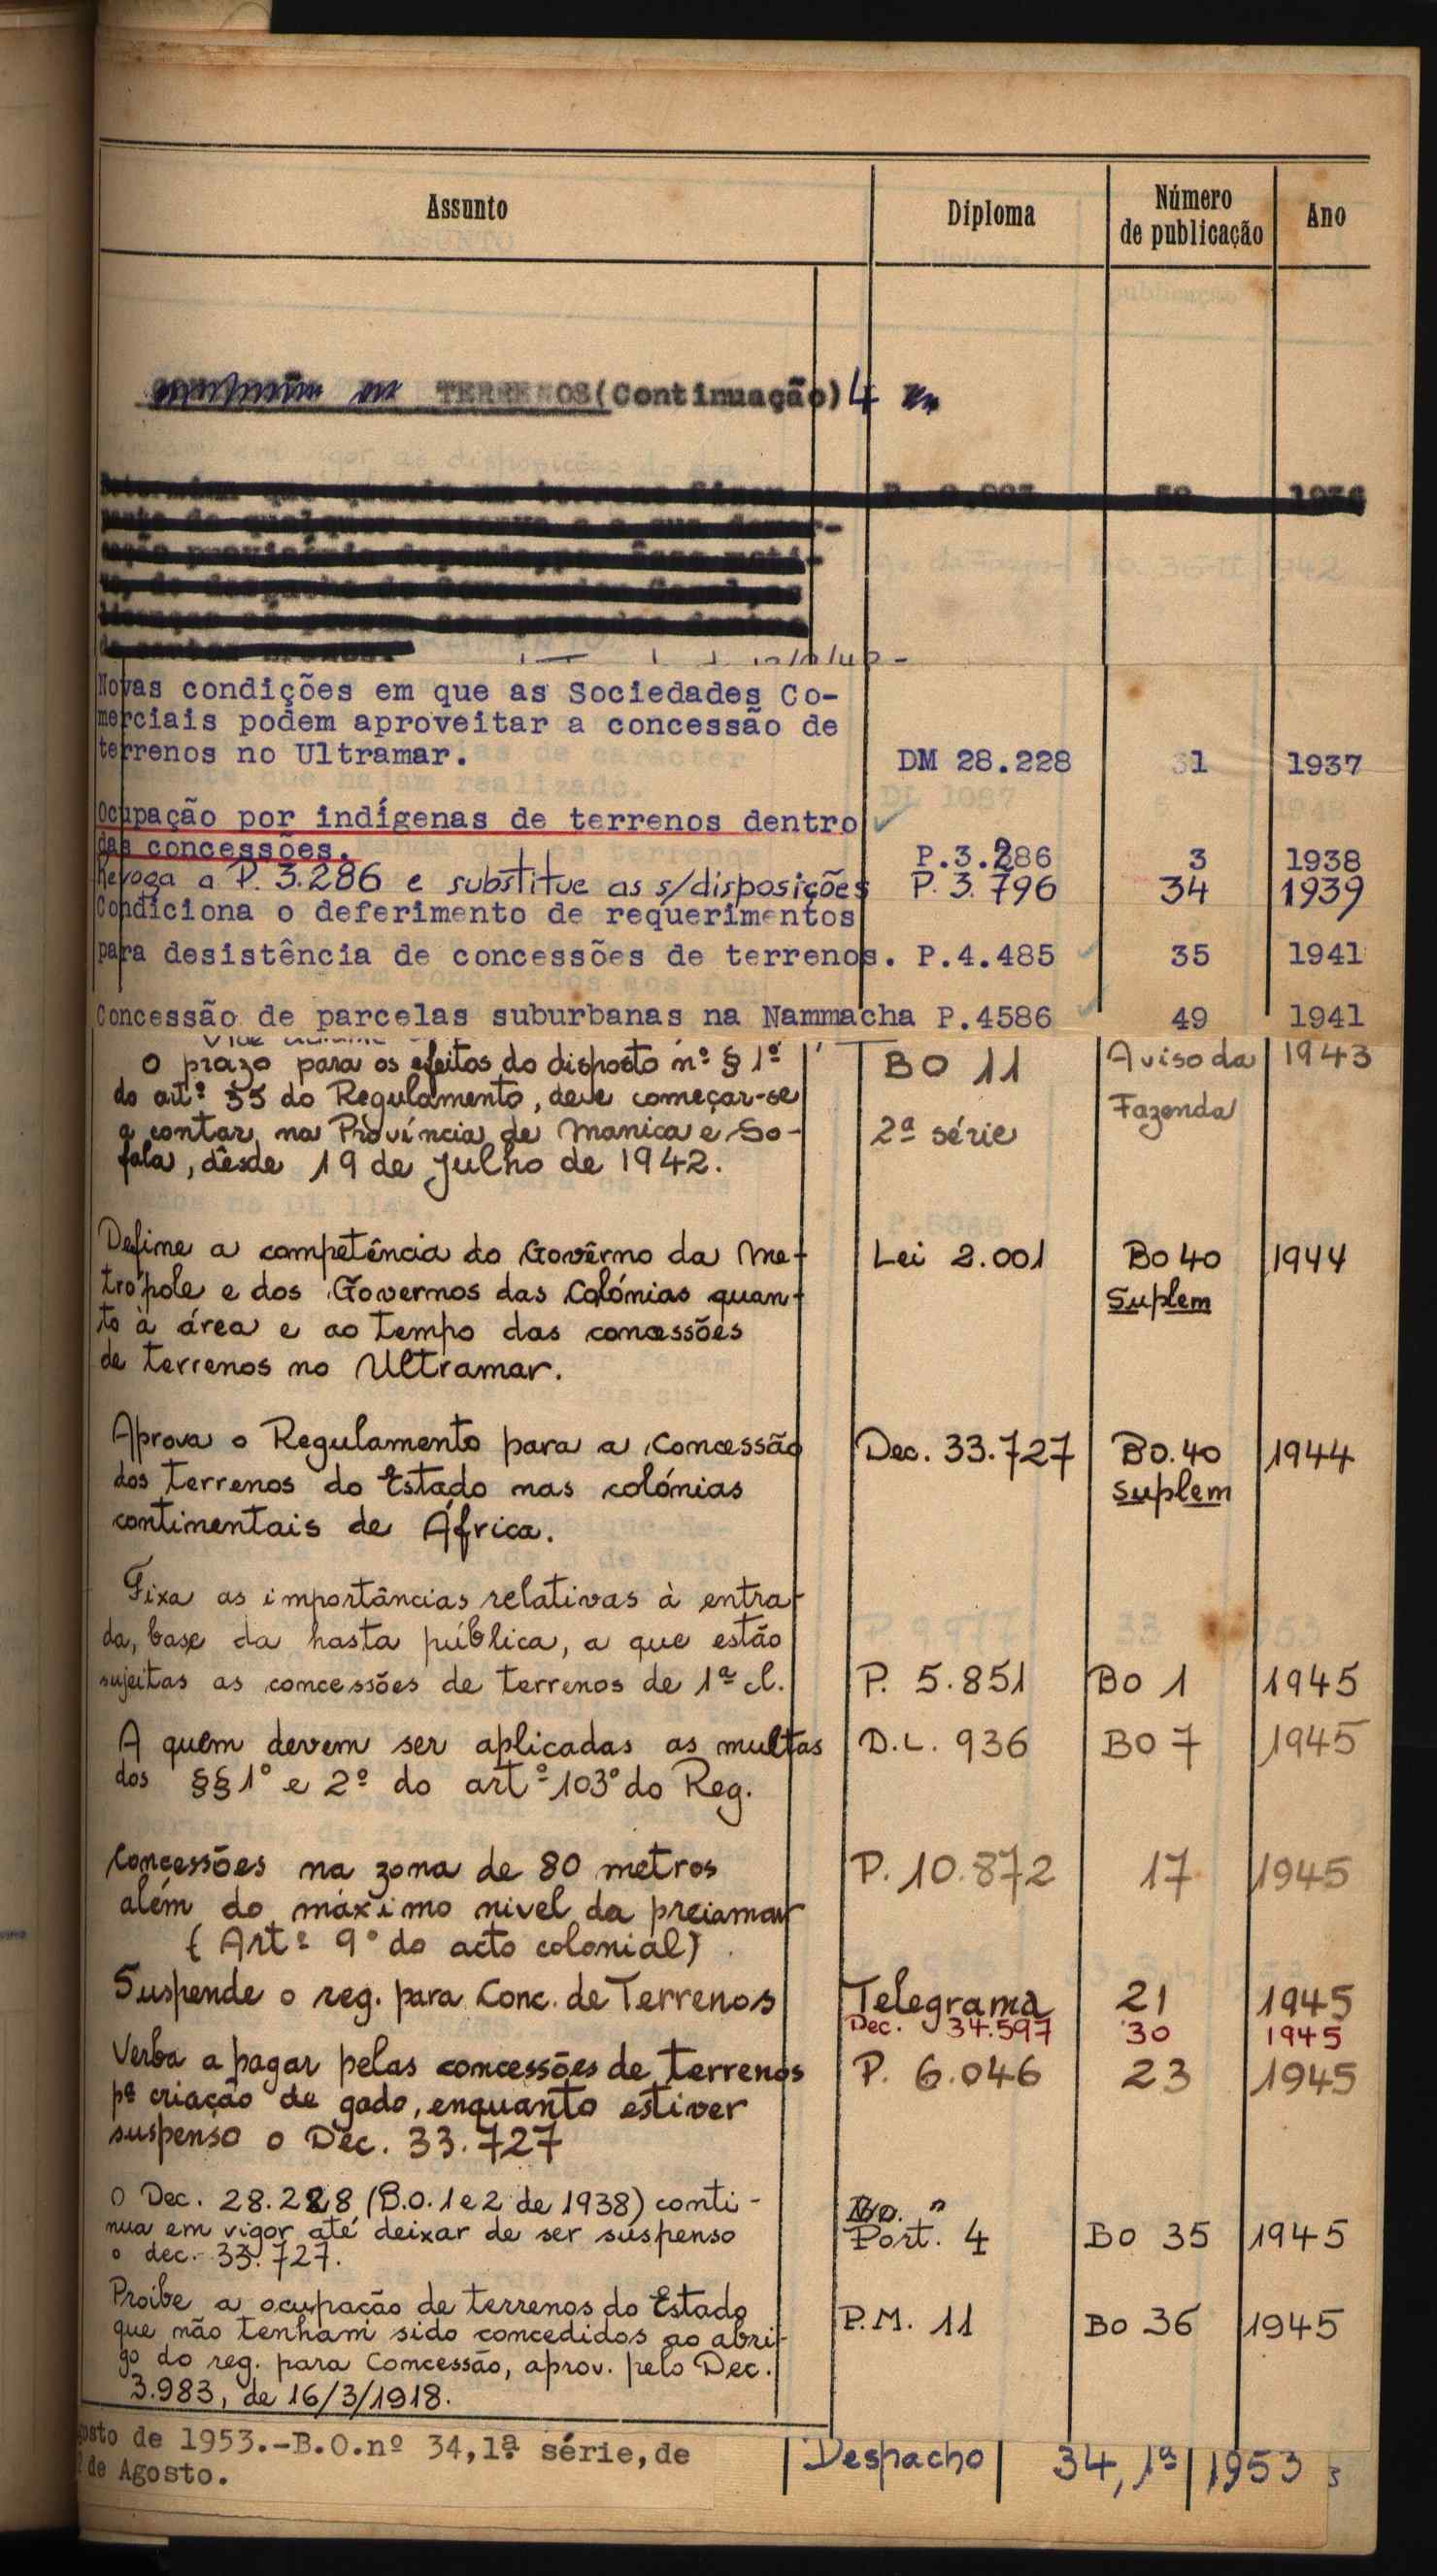 Assunto Diploma Número de publicação Ano
TERRENOS(Continuação) 4
1936
Novas condições em que as Sociedades Co-
merciais podem aproveitar a concessão de
terrenos no Ultramar. DM 28.228 31 1937
Ocupação por indígenas de terrenos dentro
das concessões. P.3.286 3 1938
Revoga a P. 3.286 e substitue as s/disposições P. 3.796 34 1939
Condiciona o deferimento de requerimentos
para desistência de concessões de terrenos. P.4.485 35 1941
Concessão de parcelas suburbanas na Nammacha P.4586 49 1941
O prazo para os efeitos do disposto nº § 1º BO 11 Aviso da 1943
do artº 55 do Regulamento, deve começar-se Fazenda
a contar, na Província de Manica e So- 2ª série
fala, dêsde 19 de Julho de 1942.
Define a competência do Govêrno da Me- Lei 2.001 BO 40 1944
trópole e dos Governos das Colónias quan- Suplem
to à área e ao tempo das concessões
de terrenos no Ultramar.
Aprova o Regulamento para a Concessão Dec. 33.727 BO.40 1944
dos terrenos do Estado nas colónias Suplem
continentais de África.
Fixa as importâncias relativas à entra-
da, base da hasta pública, a que estão
sujeitas as concessões de terrenos de 1ª cl. P. 5.851 BO 1 1945
A quem devem ser aplicadas as multas D.L. 936 BO 7 1945
dos §§ 1º e 2º do artº 103º do Reg.
Concessões na zona de 80 metros P. 10.872 17 1945
além do máximo nivel da preiamar
(Artº 9º do acto colonial)
Suspende o reg. para Conc. de Terrenos Telegrama 21 1945
Dec. 34.597 30 1945
Verba a pagar pelas concessões de terrenos P. 6.046 23 1945
pª criação de gado, enquanto estiver
suspenso o Dec. 33.727
O Dec. 28.228 (B.O. 1 e 2 de 1938) conti-
nua em vigor até deixar de ser suspenso Port. 4 BO 35 1945
o dec. 33.727.
Proibe a ocupação de terrenos do Estado P.M. 11 BO 36 1945
que não tenham sido concedidos ao abri-
go do reg. para Concessão, aprov. pelo Dec.
3.983, de 16/3/1918.
osto de 1953.-B.O.nº 34,1ª série,de Despacho 34, 1ª 1953
de Agosto.